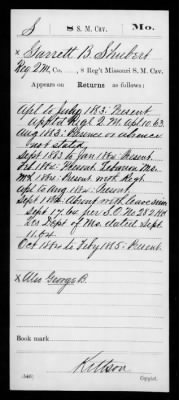 S | 8 S. M. Cav. | Mo.
Garrett B. Shubert
Reg Q.M., Co. , 8 Reg't Missouri S. M. Cav.
Appears on Returns as follows:
Apl to July 1863: Present
Appt'd Regl Q.M. Apl 10. 63.
Aug 1863: Presence or absence
not stated
Sept 1863 to Jan 1864: Present.
Feb 1864: Present Lebanon Mo.
Mch 1864: Present with Regt.
Apl to Aug 1864: Present
Sept 1864: Absent with leave since
Sept 17, 64 per S.O. No 252 Hd
Qrs Dept of Mo. dated Sept
11. 64
Oct 1864 to Feby 1865: Present.
Also George B.
Book mark:
Kittson
(546) Copyist.